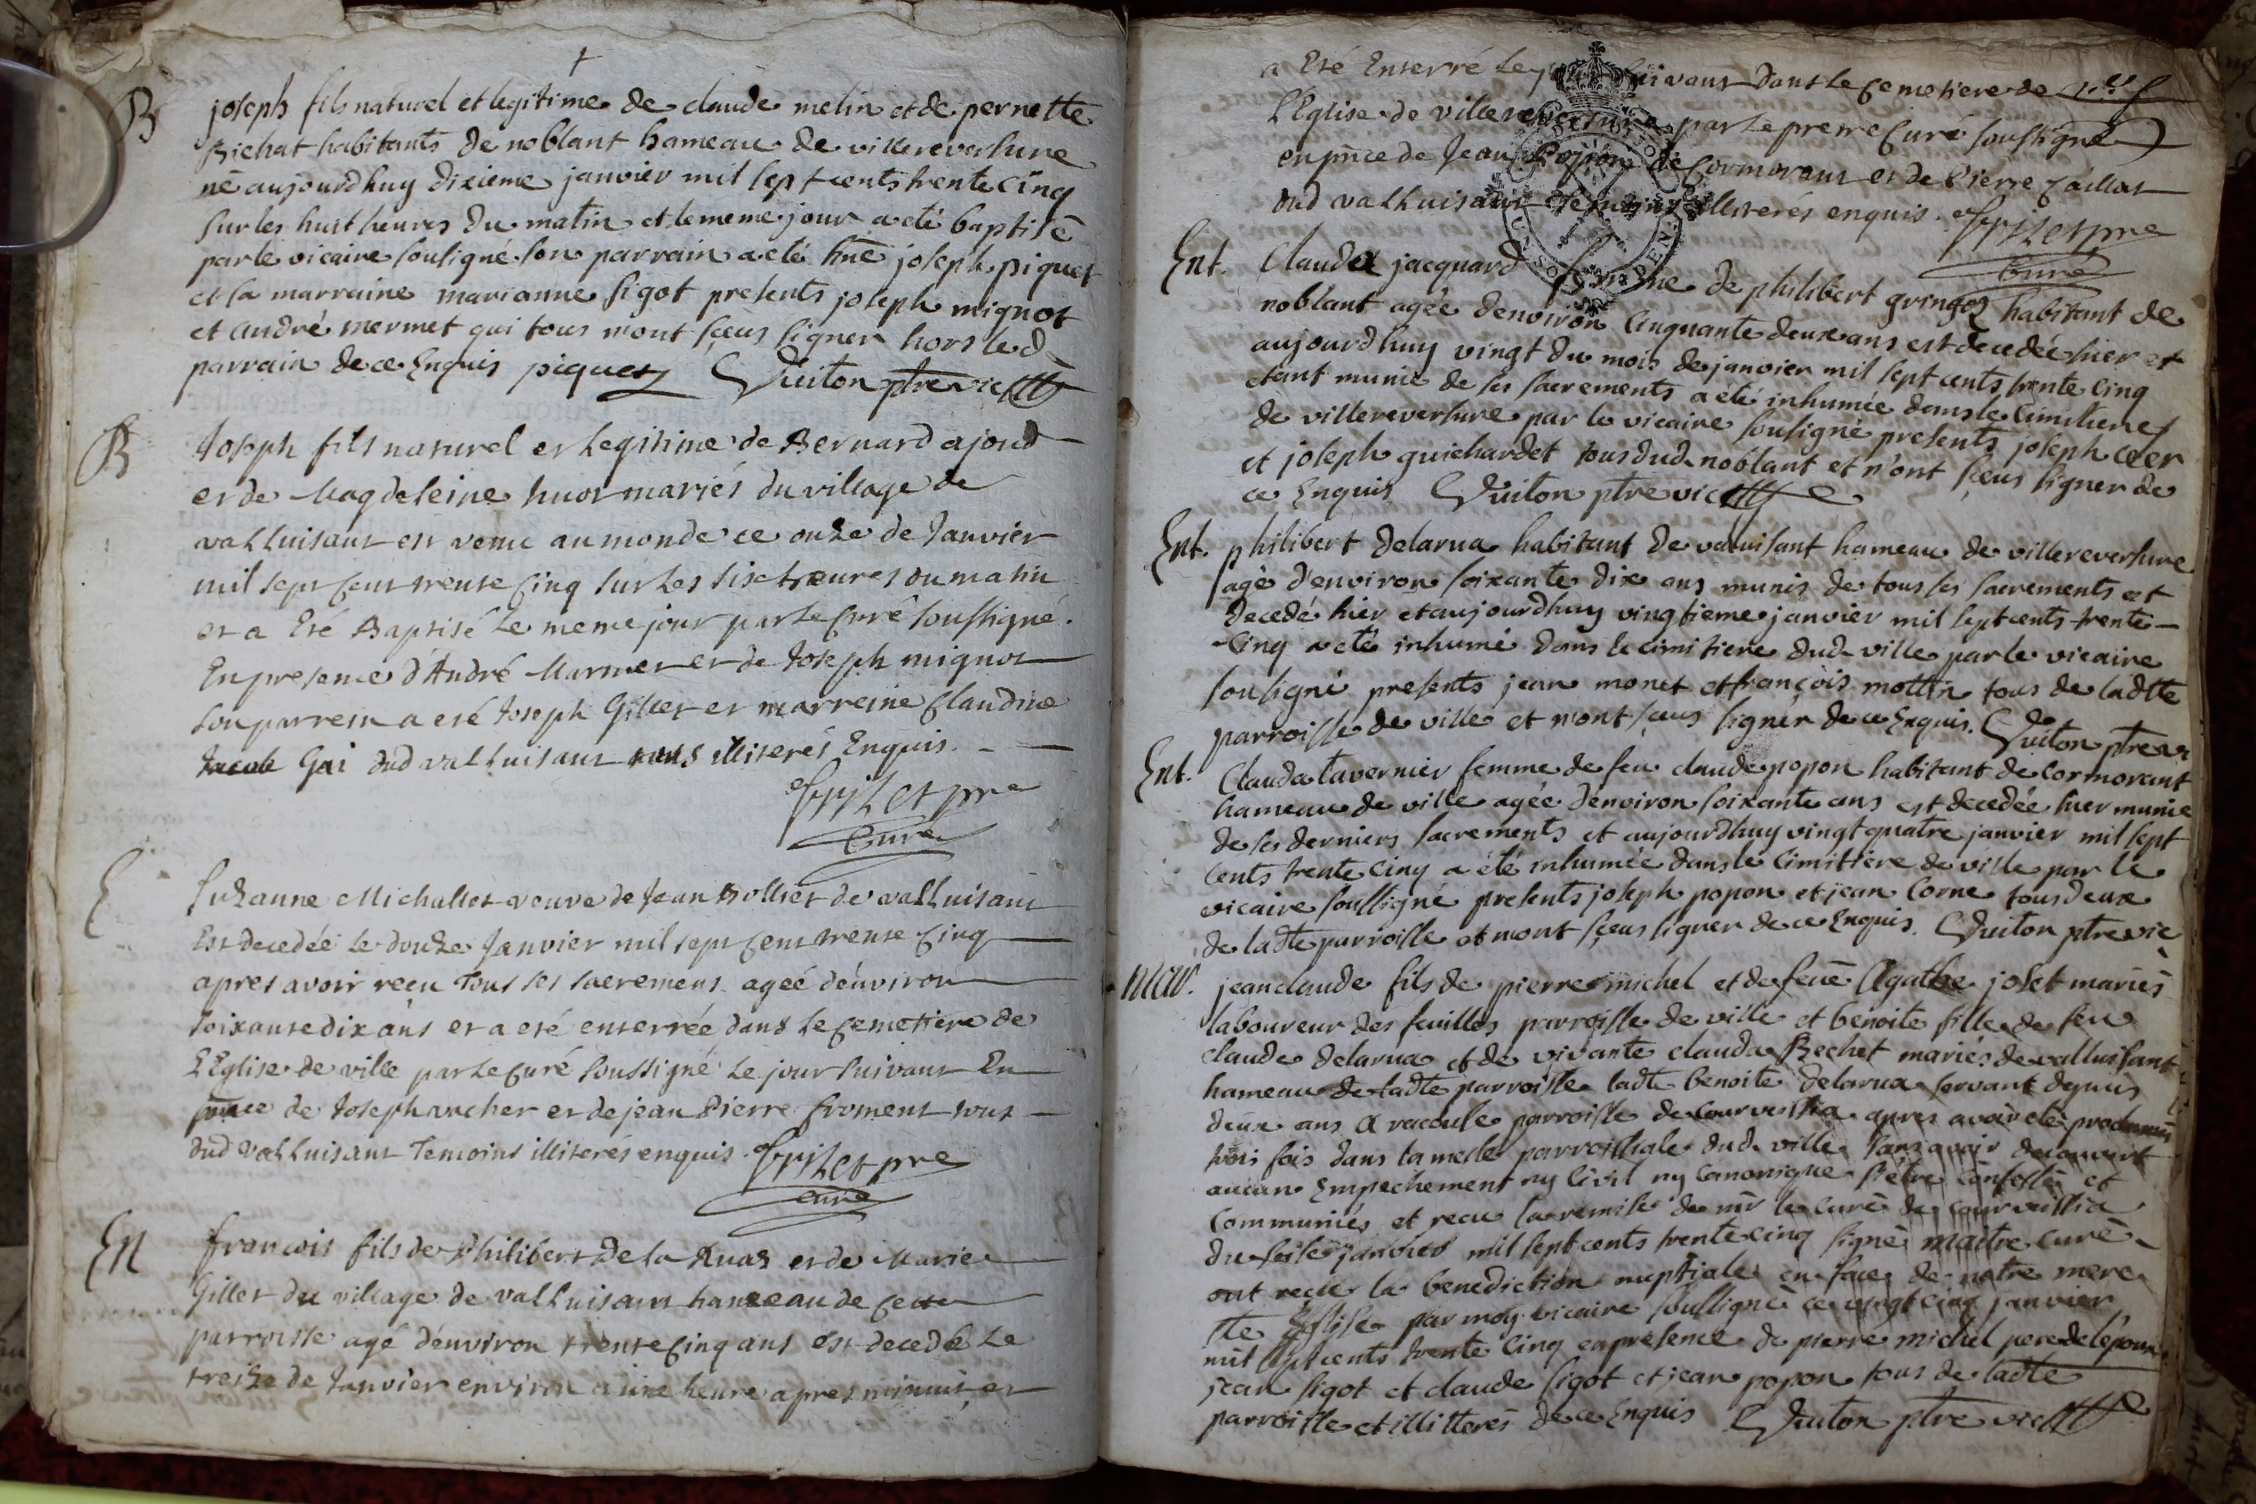 B joseph fils naturel et legitime de claude melin et de pernette
Bichat habitants de noblant hameau de villereversure
né aujourdhuy dixieme janvier mil sept cents trente cinq
sur les huit heures du matin et le meme jour a eté baptisé
par le vicaire souligné son parrain a eté hñe joseph piquet
et la marraine marianne sigot presents joseph mignot
et andré mermet qui tous n'ont sçeus signer hors led
parrain de ce Enquis piquet Vuiton ptre vic
B Joseph fils naturel et legitime de Bernard ajoud
et de Magdeleine huot mariés du village de
valluisant est venu au monde ce onze de Janvier
mil sept cent trente cinq sur les six heures du matin
et a Eté Baptisé le meme jour par le curé soussigné.
En presence d'André Marmet et de Joseph mignot
son parrein a eté Joseph Gillet et marreine Claudine
Gai dud valluisant tous illiterés Enquis.
pre
Curé
E Suzanne Michallet veuve de Jean Bollier de valluisant
Est decedée le douze Janvier mil sept cent trente cinq
apres avoir reçu tous ses sacremens ageé d'environ
soixante dix ans et a eté enterrée dans le cemetiere de
l'Eglise de ville par le curé soussigné le jour suivant En
pñce de Joseph vucher et de jean Pierre froment tous
dud valluisant Temoins illiterés enquis. pre
curé
En françois fils de Philibert de la Ruaz et de Marie
Gillet du village de valluisant hameau de cette
parroisse agé d'environ trente cinq ans est decedé le
treize de Janvier environ a une heure apres minuit, et
a Eté Enterré le jour suivant dans le cemetiere de
l'Eglise de villereversure par le pretre Curé soussigné
en pñce de Jean Popon de Cormorant et de Pierre
dud valluisant temoins illiterés enquis. pre
Curé
Ent. Clauda jacquard femme de philibert gringoz habitant de
noblant agée denviron cinquante deux ans est decedée hier et
aujourdhuy vingt du mois de janvier mil sept cents trente cinq
etant munie de ses sacrements a eté inhumée dans le cimitiere
de villereversure par le vicaire souligné presents joseph
et joseph guichardet tous dud noblant et n'ont sçeus signer de
ce Enquis Vuiton ptre vic
Ent. philibert delarua habitant de valuisant hameau de villereversure
agé d'environ soixante dix ans munis de tous ses sacrements est
decedé hier et aujourdhuy vingtieme janvier mil sept cents trente
cinq a eté inhumé dans le cimitiere dud ville par le vicaire
souligné presents jean monet et françois mottin tous de ladtte
parroisse de ville et n'ont sçeus signer de ce Enquis. Vuiton ptre vic
Ent. Clauda tavernier femme de feu claude popon habitant de cormorant
hameau de ville agée d'environ soixante ans est decedée hier munie
de ses derniers sacrements et aujourdhuy vingt quatre janvier mil sept
cents trente cinq a eté inhumée dans le cimitiere de ville par le
vicaire soussigné presents joseph popon et jean Corne tous deux
de ladte parroisse et n'ont sçeus signer de ce Enquis. Vuiton ptre vic
mar. jean claude fils de pierre michel et de feuë Agathe joset mariés
laboureur des feuilles parroisse de ville et benoite fille de feu
claude delarua et de vivante clauda Rechet mariés de valluisant
hameau de ladte parroisse ladte benoite delarua servant depuis
deux ans a racoule parroisse de Courvissia apres avoir eté proclamés
trois fois dans la messe parroissiale dud ville sans avoir decouvert
aucun Empechement ny Civil ny Canonique s'etre confessés et
communiés et recu la remise de mr le curé de courvissia
du seise janvier mil sept cents trente cinq signé maitre curé
ont reçu la benediction nuptiale en face de notre mere
ste Eglise par moy vicaire soussigné ce vingt cinq janvier
mil sept cents trente cinq en presence de pierre michel pere de lépoux
jean sigot et claude sigot et jean popon tous de ladte
parroisse et illitterés de ce Enquis Vuiton ptre vic